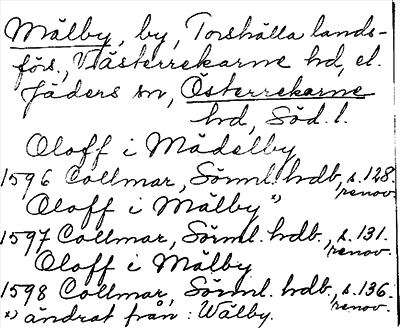 Mälby, by, Torshälla lands-
förs., Västerrekarne hd, el.
Jäders sn, Österrekarne
hd, Söd. l.
Oloff i Mädelby
1596 Collmar, Sörml. hdb., s. 128.
renov.
Oloff i Mälby x)
1597 Collmar, Sörml. hdb., s. 131.
renov.
Oloff i Mälby
1598 Collmar, Sörml. hdb., s. 136.
renov.
x) ändrat från: Wälby.